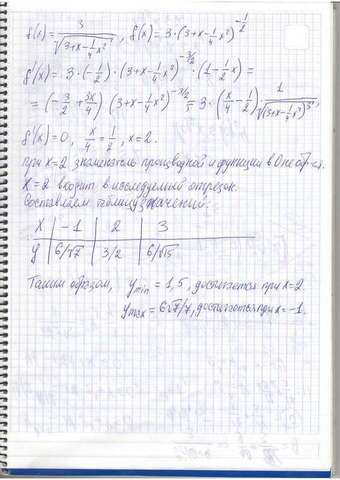 f(x) = 3/√(3+x-1/4x²), f(x) = 3·(3+x-1/4x²)^(-1/2)
f'(x) = 3·(-1/2)·(3+x-1/4x²)^(-3/2)·(1-1/2x) =
= (-3/2+3x/4)(3+x-1/4x²)^(-3/2) = 3·(x/4-1/2) 1/√((3+x-1/4x²)³),
f'(x)=0, x/4=1/2, x=2.
При x=2 знаменатель производной и функции в 0 не обр-ся.
X=2 входит в исследуемый отрезок.
Составляем таблицу значений:
X | -1 | 2 | 3
y | 6/√7 | 3/2 | 6/√15
Таким образом, y min = 1,5, достигается при x=2
y max = 6√7/7, достигается при x=-1.